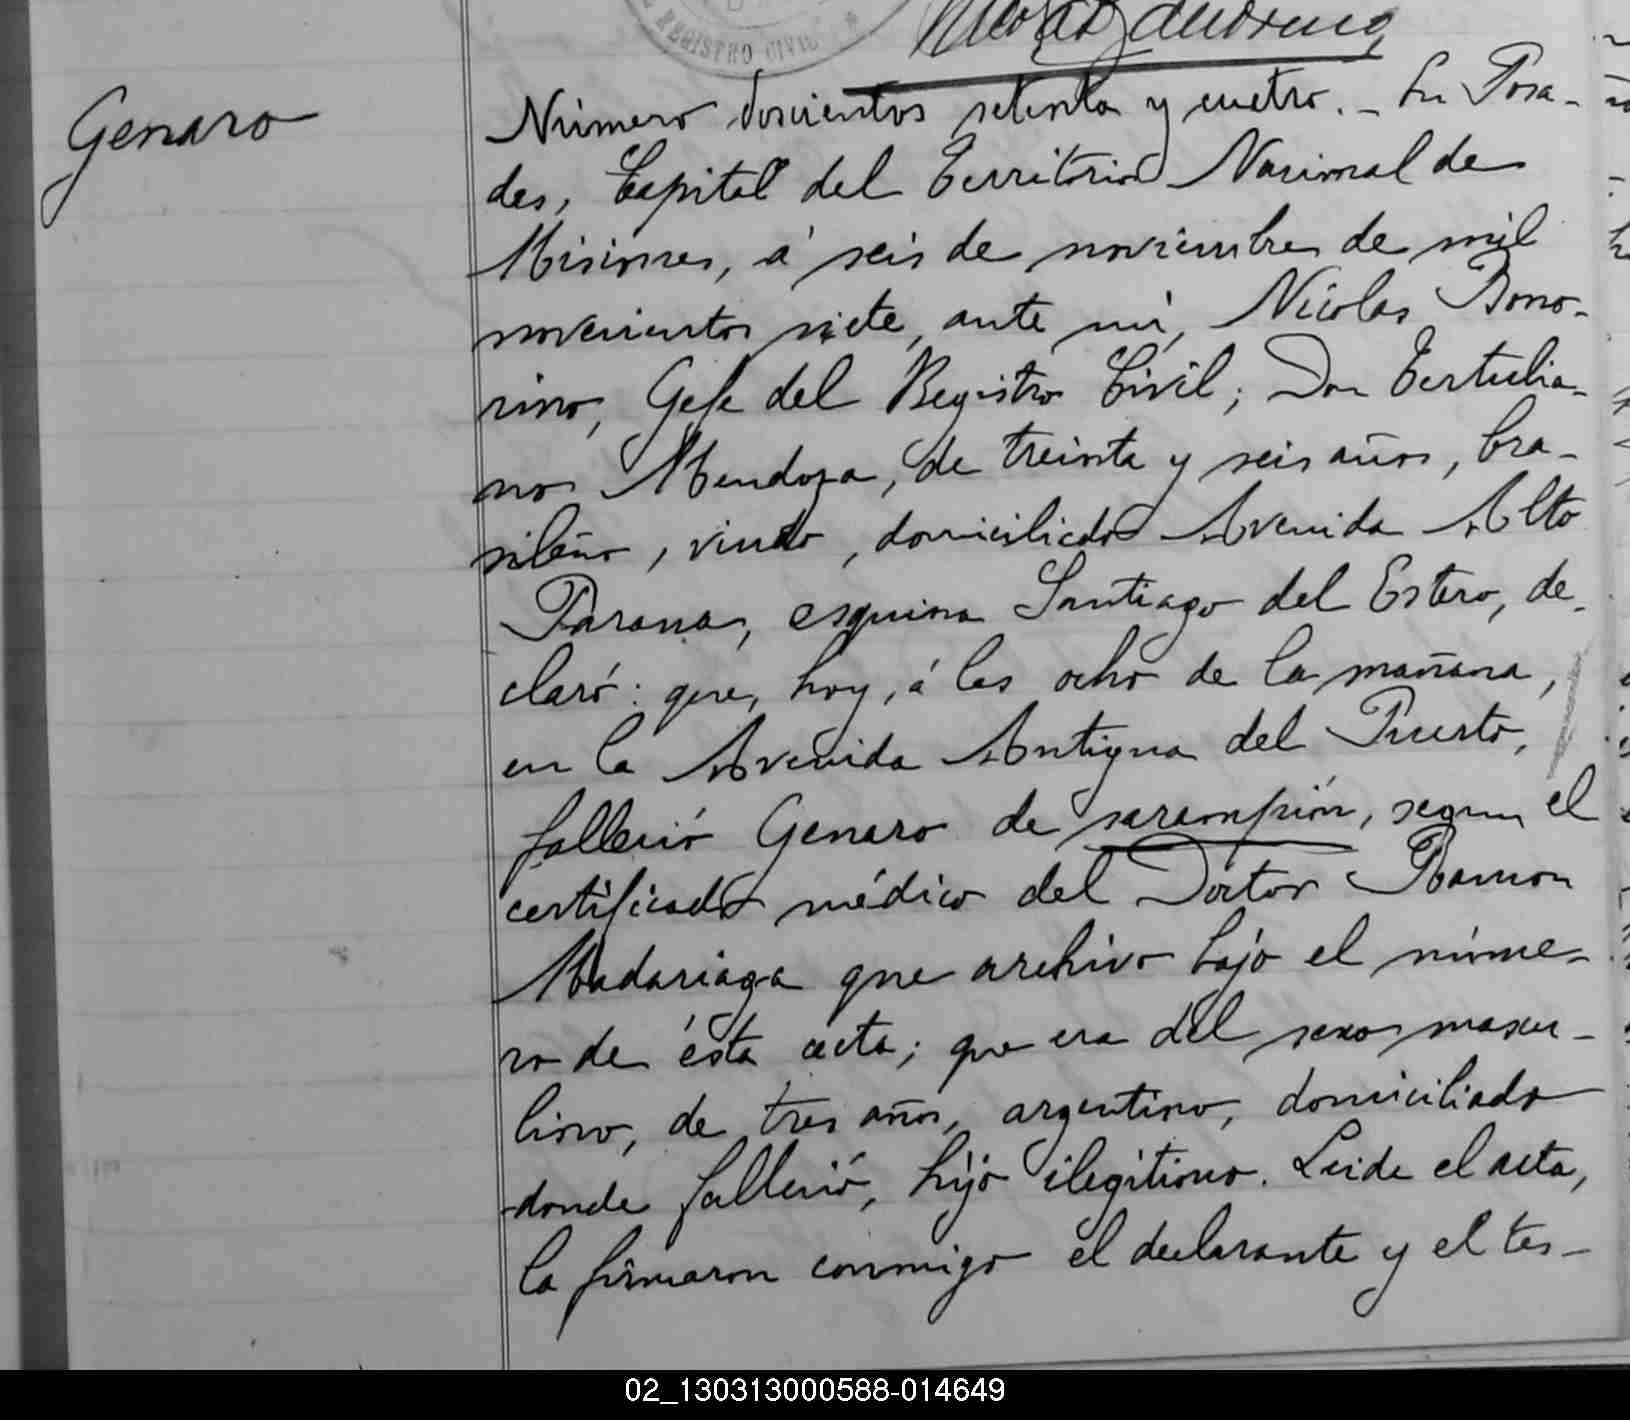 REGISTRO CIVIL
Genaro
Número doscientos setenta y cuatro. - En Posa-
das, Capital del Territorio Nacional de
Misiones, á seis de noviembre de mil
novecientos siete, ante mi, Nicolas Bono-
rino, Gefe del Registro Civil; Don Tertulia-
no Mendoza, de treinta y seis años, bra-
sileño, viudo, domiciliado Avenida Alto
Parana, esquina Santiago del Estero, de-
claró: que, hoy, á las ocho de la mañana,
en la Avenida Antigua del Puerto,
falleció Genaro de sarampión, segun el
certificado médico del Doctor Ramon
Madariaga que archivo bajo el núme-
ro de ésta acta; que era del sexo mascu-
lino, de tres años, argentino, domiciliado
donde falleció, hijo ilegitimo. Leida el acta,
la firmaron conmigo el declarante y el tes-
02_130313000588-014649